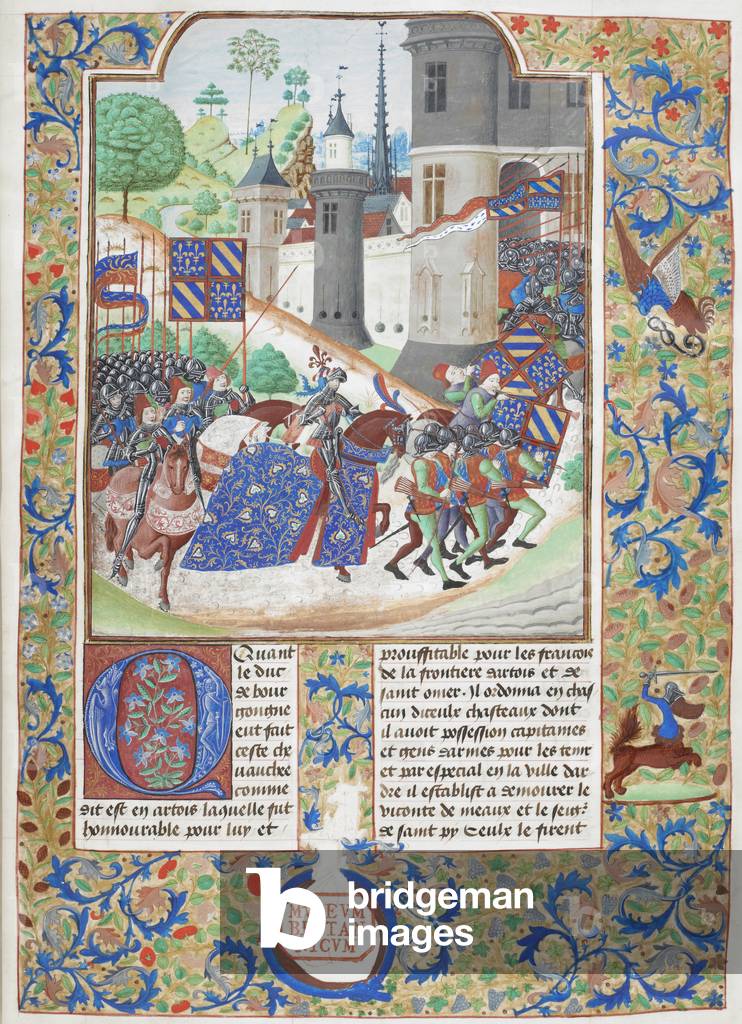 Quant
le duc
de bour
gongne
eut fait
ceste che
uauchee
comme
dit est en artois laquelle fut
honnourable pour luy et
prouffitable pour les francois
de la frontiere dartois et de
saint omer. Il ordonna en chas
cun diceulx chasteaux dont
il auoit possession capitaines
et gens darmes pour les tenir
et par especial en la ville dar
dre il establist a demourer le
viconte de meaux et le seigr
de saint py Ceulx le firent
MVSEVM
BRITAN
NICVM
b bridgeman
images